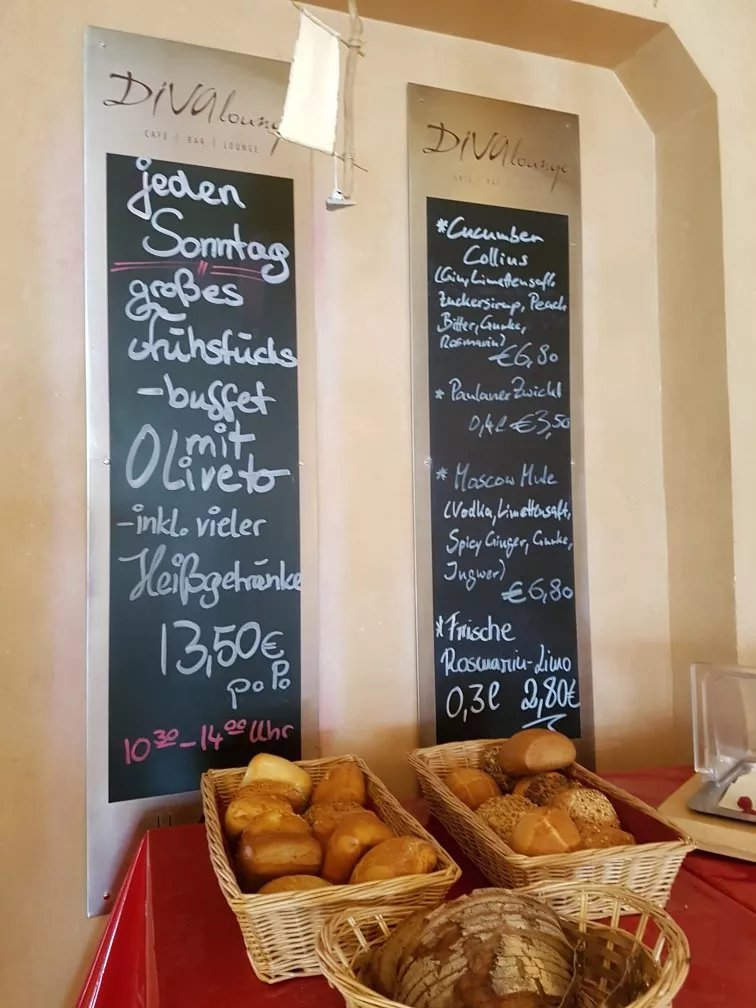 DiVAlounge
CAFE | BAR | LOUNGE
jeden
Sonntag
großes
Frühstücks
-buffet
mit
OLiveto
-inkl. vieler
Heißgetränke
13,50€
p.P.
10³⁰-14⁰⁰ Uhr
DiVAlounge
* Cucumber
Collins
(Gin, Limettensaft,
Zuckersirup, Peach
Bitter, Gurke,
Rosmarin)
€6,80
* Paulaner Zwickl
0,4l €3,50
* Moscow Mule
(Vodka, Limettensaft,
Spicy Ginger, Gurke,
Ingwer)
€6,80
* Frische
Rosmarin-Limo
0,3l 2,80€